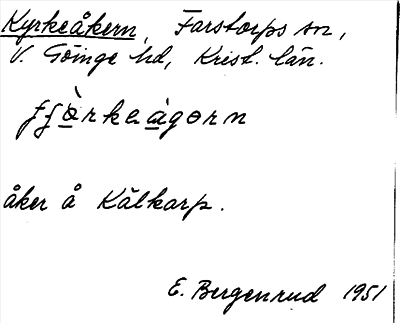 Kyrkeåkern, Farstorps sn,
V. Göinge hd, Krist. län.
åker å Kälkarp.
E. Bergenrud 1951